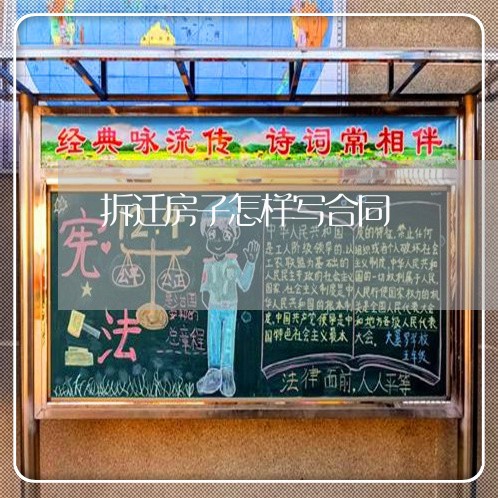 经典咏流传 诗词常相伴
拆迁房子怎样写合同
宪
法
公平
公正
治国
总章程
中华人民共和国
是工人阶级领导的,以
工农联盟为基础的
人民民主专政的社会主义
国家,社会主义制度是中
华人民共和国的根本制
度,中国共产党领导是中
国特色社会主义最本
质的特征,禁止任何
组织或者个人破坏社会
主义制度,中华人民共和
国的一切权利属于人民,
人民行使国家权力的机
关是全国人民代表大会
和地方各级人民代表
大会。
五年级
法律面前,人人平等